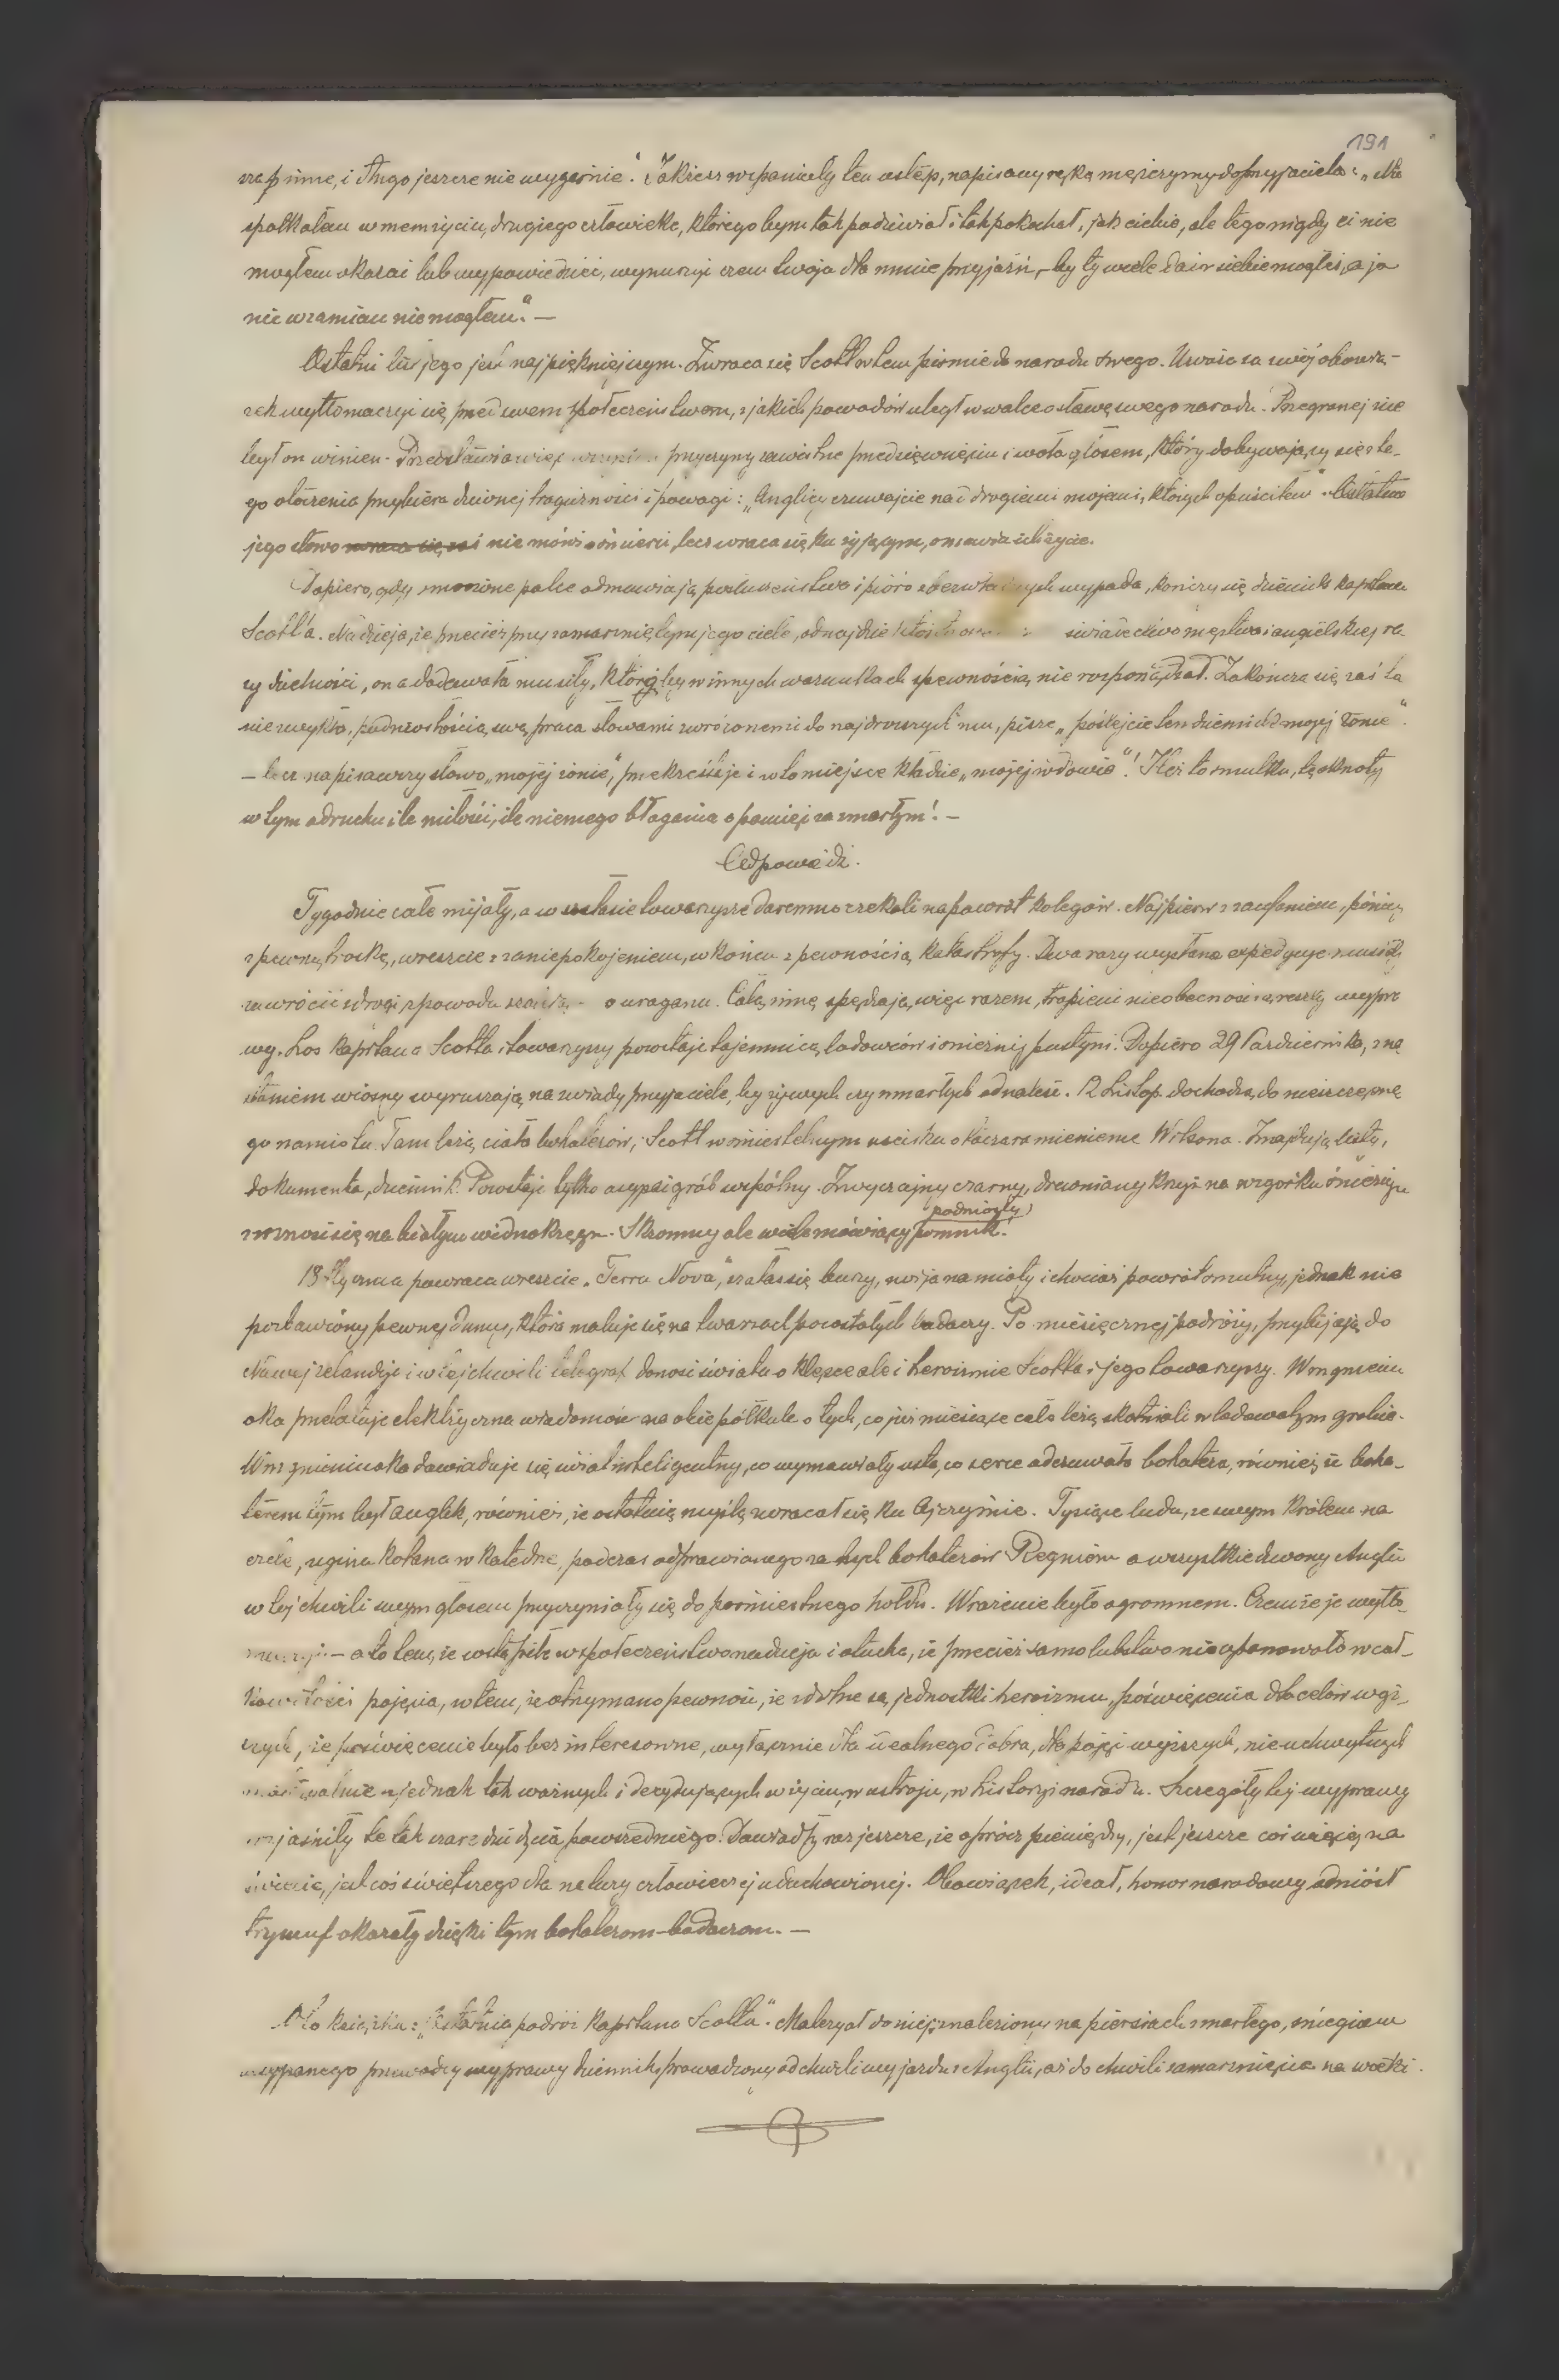 191
zaginie, i długo jeszcze nie wygaśnie". Jakżesz wspaniały ten ustęp, napisany ręką mężczyzny do przyjaciela: „Nie
spotkałem w mem życiu, drugiego człowieka, którego bym tak podziwiał i tak pokochał, jak ciebie, ale tego nigdy ci nie
mogłem okazać lub wypowiedzieć, czem twoja dla mnie przyjaźń, – by ty wiele dać z siebie mogłeś, a ja
nic wzamian nie mogłem." —
Ostatni list jego jest najpiękniejszym. Zwraca się Scott w tem piśmie do narodu swego. Uważa za swój obowią-
zek wytłomaczyć się przed swem społeczeństwem, z jakich powodów uległ w walce o sławę swego narodu. Przegranej nie
był on winien. Przedstawia więc przyczyny zawistne przedsięwzięciu i woła głosem, który dobywający się z te-
go otoczenia przybiera dziwnej tragiczności i powagi: „Anglicy czuwajcie nad drogiemi mojemi, których opuściłem". Ostatnie
jego słowo nie mówi o śmierci, lecz zwraca się ku żyjącym, omawia ich życie.
Dopiero, gdy zmarzłe palce odmawiają posłuszeństwa i pióro z bezwładnych wypada, kończy się dziennik kapitana
Scott'a. Nadzieja, że przecież przy zamarzniętym jego ciele, odnajdzie ktoś świadectwo męstwa i angielskiej ra-
sy dzielności, ona dodawała mu siły, którąby w innych warunkach z pewnością nie rozporządzał. Zakończa się zaś ta
niezwykła, podniosłością swą praca słowami zwróconemi do najdroższych mu, pisze „poślijcie ten dziennik mojej żonie".
– lecz napisawszy słowo „mojej żonie", przekreśla je i w to miejsce kładzie „mojej wdowie"! Ileż to smutku, tęsknoty
w tym odruchu ile miłości, ile niemego błagania o pamięć za zmarłym! –
Odpowiedź.
Tygodnie całe mijały, a w szałasie towarzysze daremno czekali na powrót kolegów. Najpierw z zaufaniem, później
z pewną troską, wreszcie z zaniepokojeniem, w końcu z pewnością katastrofy. Dwa razy wysłane expedycje musiały
zawrócić z drogi z powodu uraganu. Całą zimę spędzają więc razem, trapieni nieobecnością reszty wypra
wy. Los kapitana Scotta i towarzyszy pozostaje tajemnicą lodowców i śnieżnej pustyni. Dopiero 29 Października, z na
staniem wiosny wyruszają na zwiady przyjaciele, by żywych czy zmarłych odnaleść. 12 Listop. dochodzą do nieszczęsne
go namiotu. Tam leżą ciała bohaterów, Scott w śmiertelnym uścisku otacza ramieniem Wilsona. Znajdują listy,
dokumenta, dziennik. Powstaje tylko wspólny. Zwyczajny czarny, drewniany krzyż na wzgórku śnieżnym
wznosi się na białym widnokręgu. Skromny ale wiele mówiący podniosły pomnik!
18 Stycznia powraca wreszcie „Terra Nova", szałas się burzy, zwija namioty i chociaż powrót smutny, jednak nie
pozbawiony pewnej dumy, która maluje się na twarzach pozostałych badaczy. Po miesięcznej podróży, przybijają do
Nowej Zelandyi i w tej chwili telegraf donosi światu o klęsce ale i heroizmie Scotta i jego towarzyszy. W mgnieniu
oka przelatuje elektryczna wiadomość na obie półkule o tych, co już miesiące całe leżą skostniali w lodowatym grobie.
W mgnieniu oka dowiaduje się świat inteligentny, co wymawiały usta, co serce odczuwało bohatera, również że boha-
terem tym był Anglik, również, że ostatnią myślą zwracał się ku Ojczyźnie. Tysiące ludu, ze swym Królem na
czele, ugina kolana w katedrze, podczas odprawianego za tych bohaterów Requiem a wszystkie dzwony Anglii
w tej chwili swym głosem przyczyniały się do pośmiertnego hołdu. Wrażenie było ogromnem. Czemże je wytło-
maczyć – a to tem, że wstąpiła w społeczeństwo nadzieja i otucha, że przecież samolubstwo nie opanowało w cał-
kowitości pojęcia, w tem, że otrzymano pewność, że zdolne są jednostki heroizmu, poświęcenia dla celów wyż-
szych, że poświęcenie było bezinteresowne, wyłącznie dla idealnego dobra, dla pojęć wyższych, nieuchwytnych
a jednak tak ważnych i decydujących w życiu, w ustroju, w historyi narodu. Szczegóły tej wyprawy
rozjaśniły te tak szare dni życia powszedniego. Dowiodły raz jeszcze, że oprócz pieniędzy, jest jeszcze coś więcej na
świecie, jest coś świętszego dla natury człowieczej uduchowionej. Obowiązek, ideał, honor narodowy odniósł
tryumf okazały dzięki tym bohaterom-badaczom. —
Oto książka: „Ostatnia podróż kapitana Scotta". Materyał do niej: znaleziony na piersiach zmarłego, śniegiem
zasypanego przewodcy wyprawy dziennik, prowadzony od chwili wyjazdu z Anglii, aż do chwili zamarznięcia na wieki.